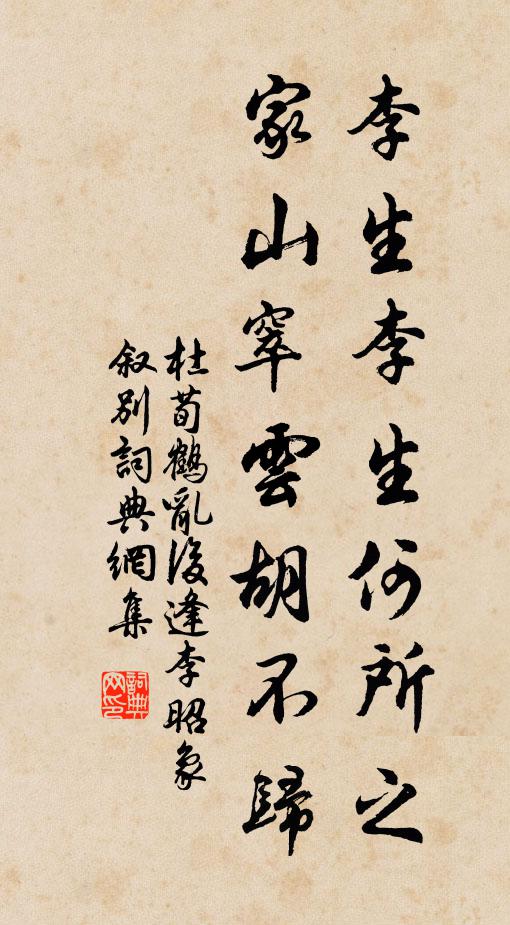 李生李生何所之
家山窣雲胡不歸
杜荀鶴亂後逢李昭象
叙別詞典網集
詞典网印